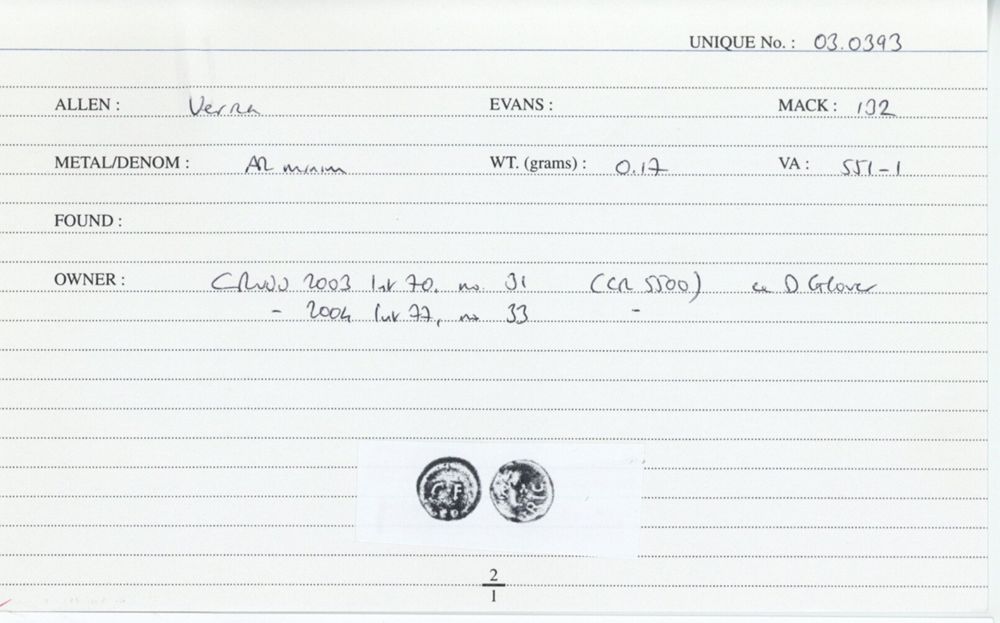 UNIQUE No. : 03.0393
ALLEN : Verica EVANS : MACK : 132
METAL/DENOM : AR minim WT. (grams) : 0.17 VA : 551-1
FOUND :
OWNER : 2003 list 70, no. 31 (CCR 5500) ex D Glover
- 2004 list 77, no 33 -
CF
2
1